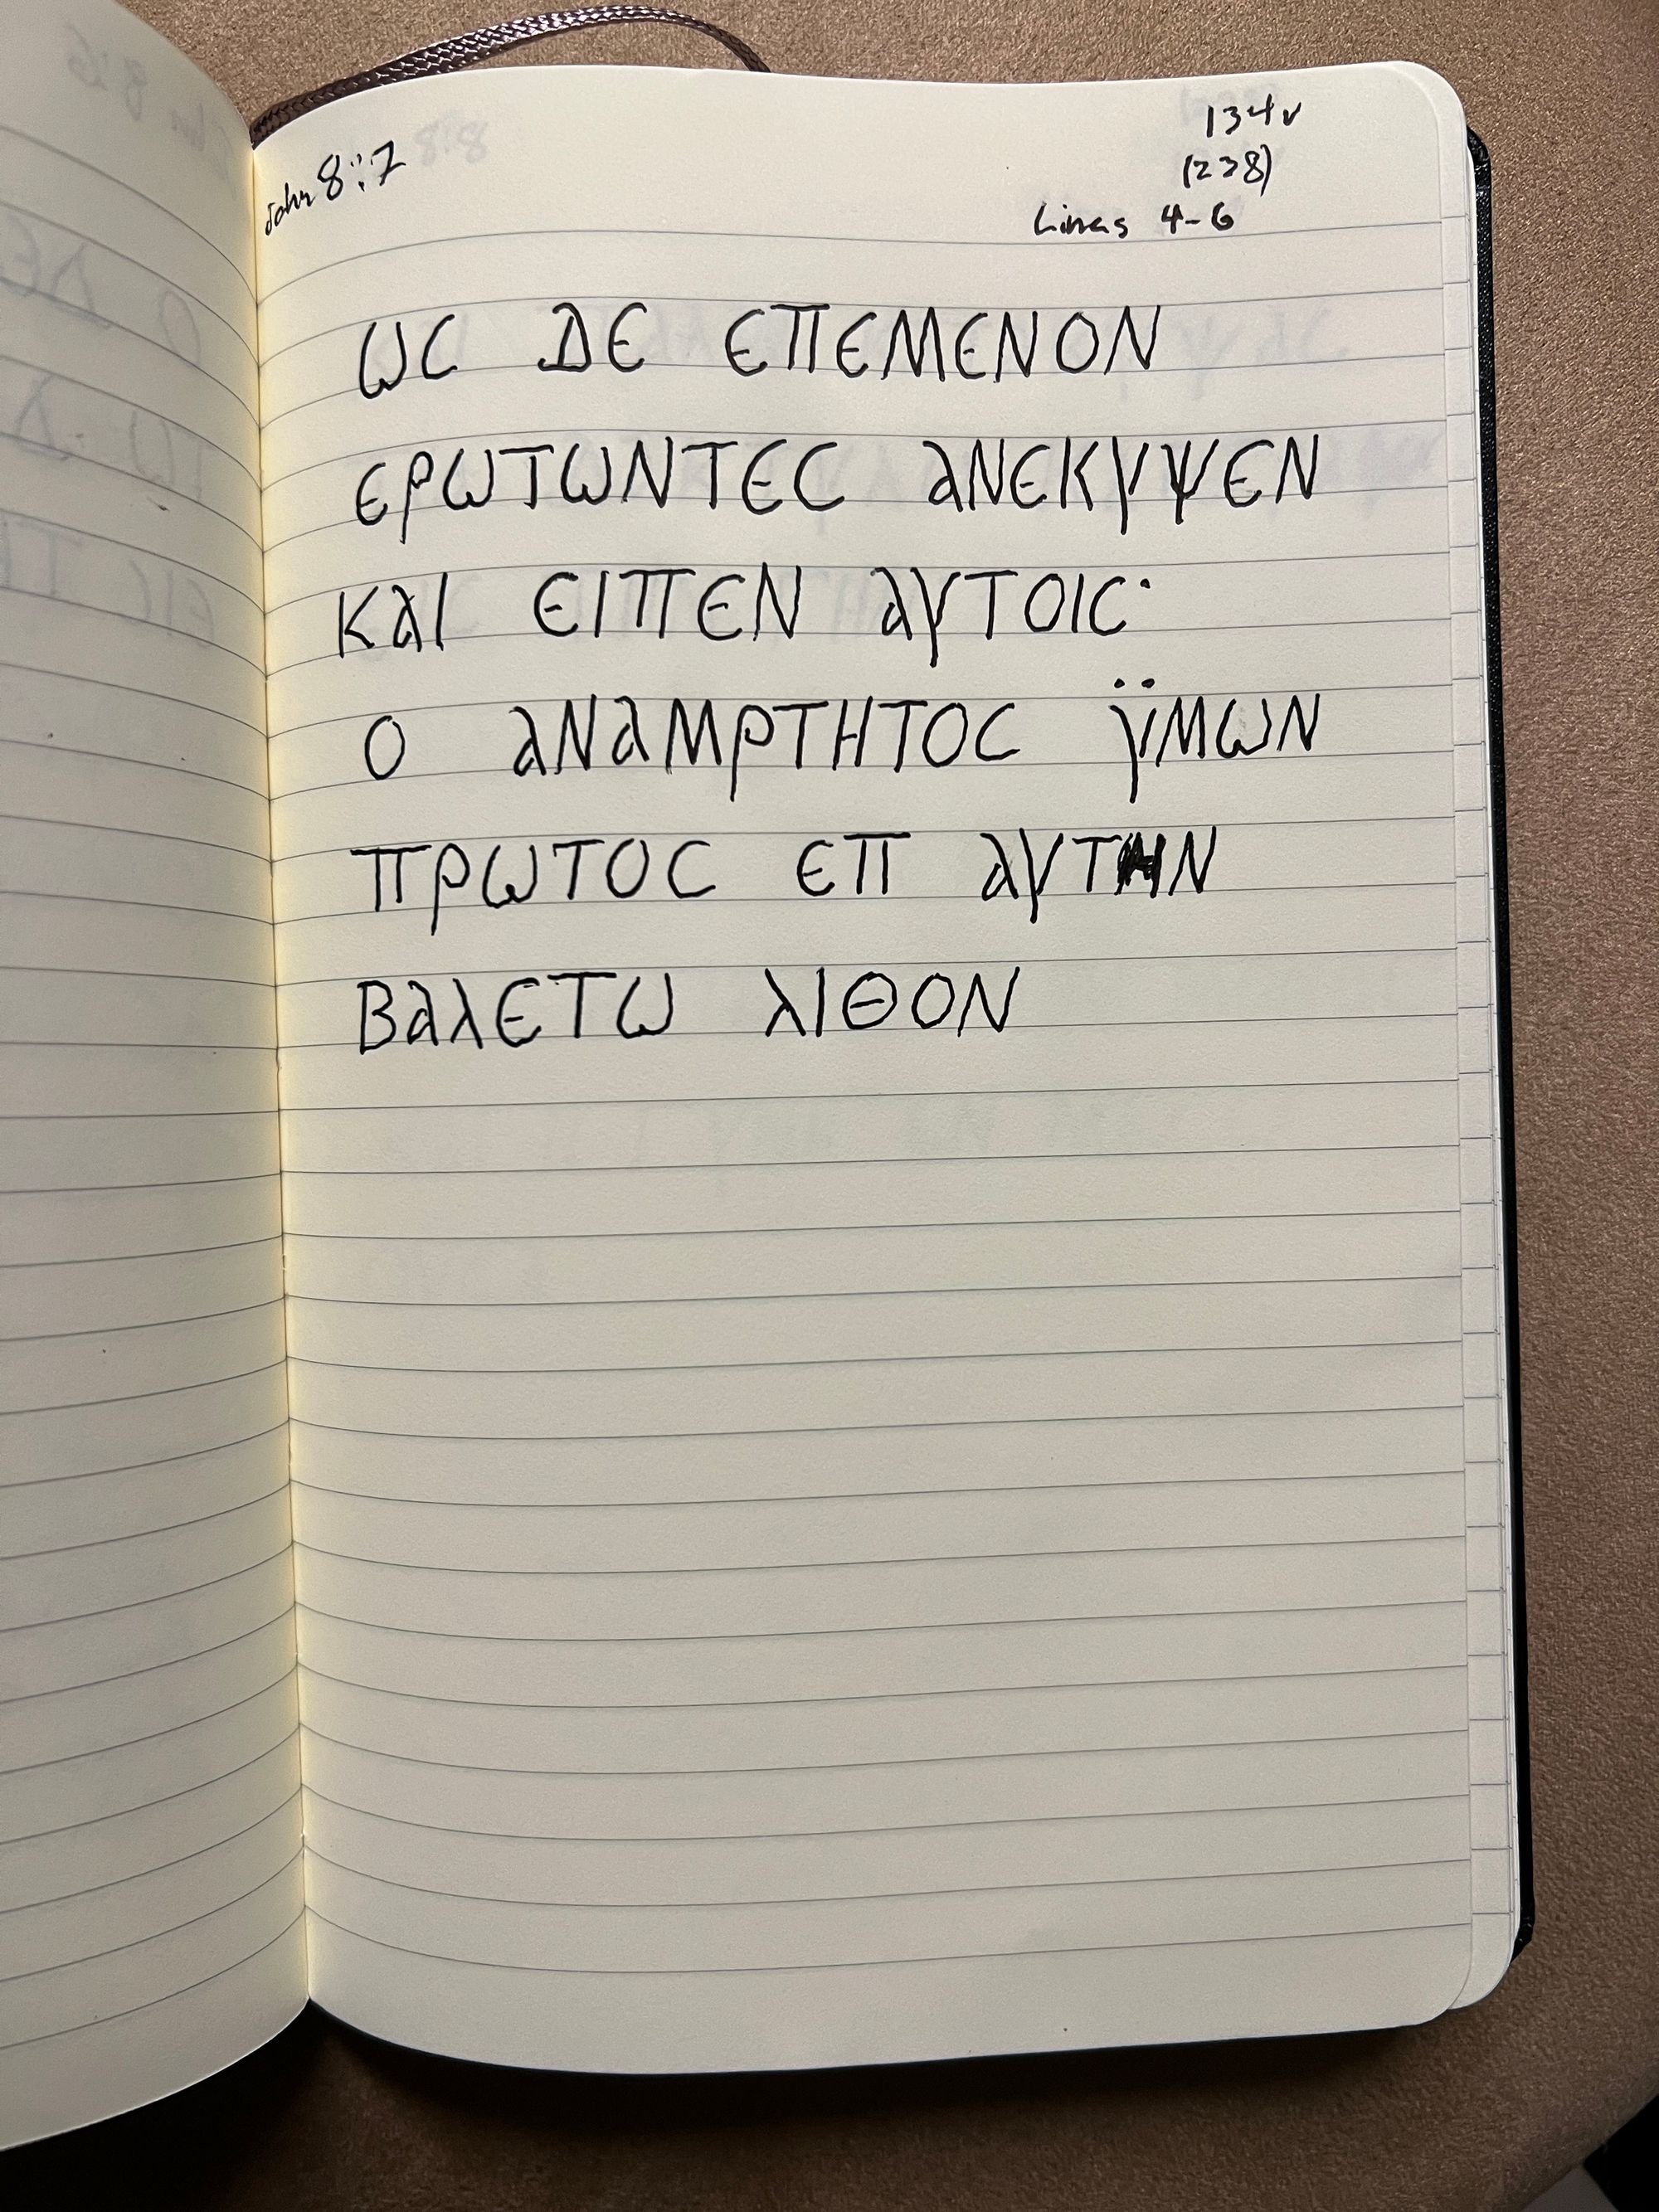 John 8:7
134v
(238)
Lines 4-6
ⲰⲤ ΔΕ ΕΠΕΜΕΝΟΝ
ΕΡωΤωΝΤΕϹ ΑΝΕΚΥΨΕΝ
ΚΑΙ ΕΙΠΕΝ ΑΥΤΟΙϹ·
Ο ΑΝΑΜΡΤΗΤΟϹ ΫΜωΝ
ΠΡωΤΟϹ ΕΠ ΑΥΤΗΝ
ΒΑΛΕΤω ΛΙΘΟΝ